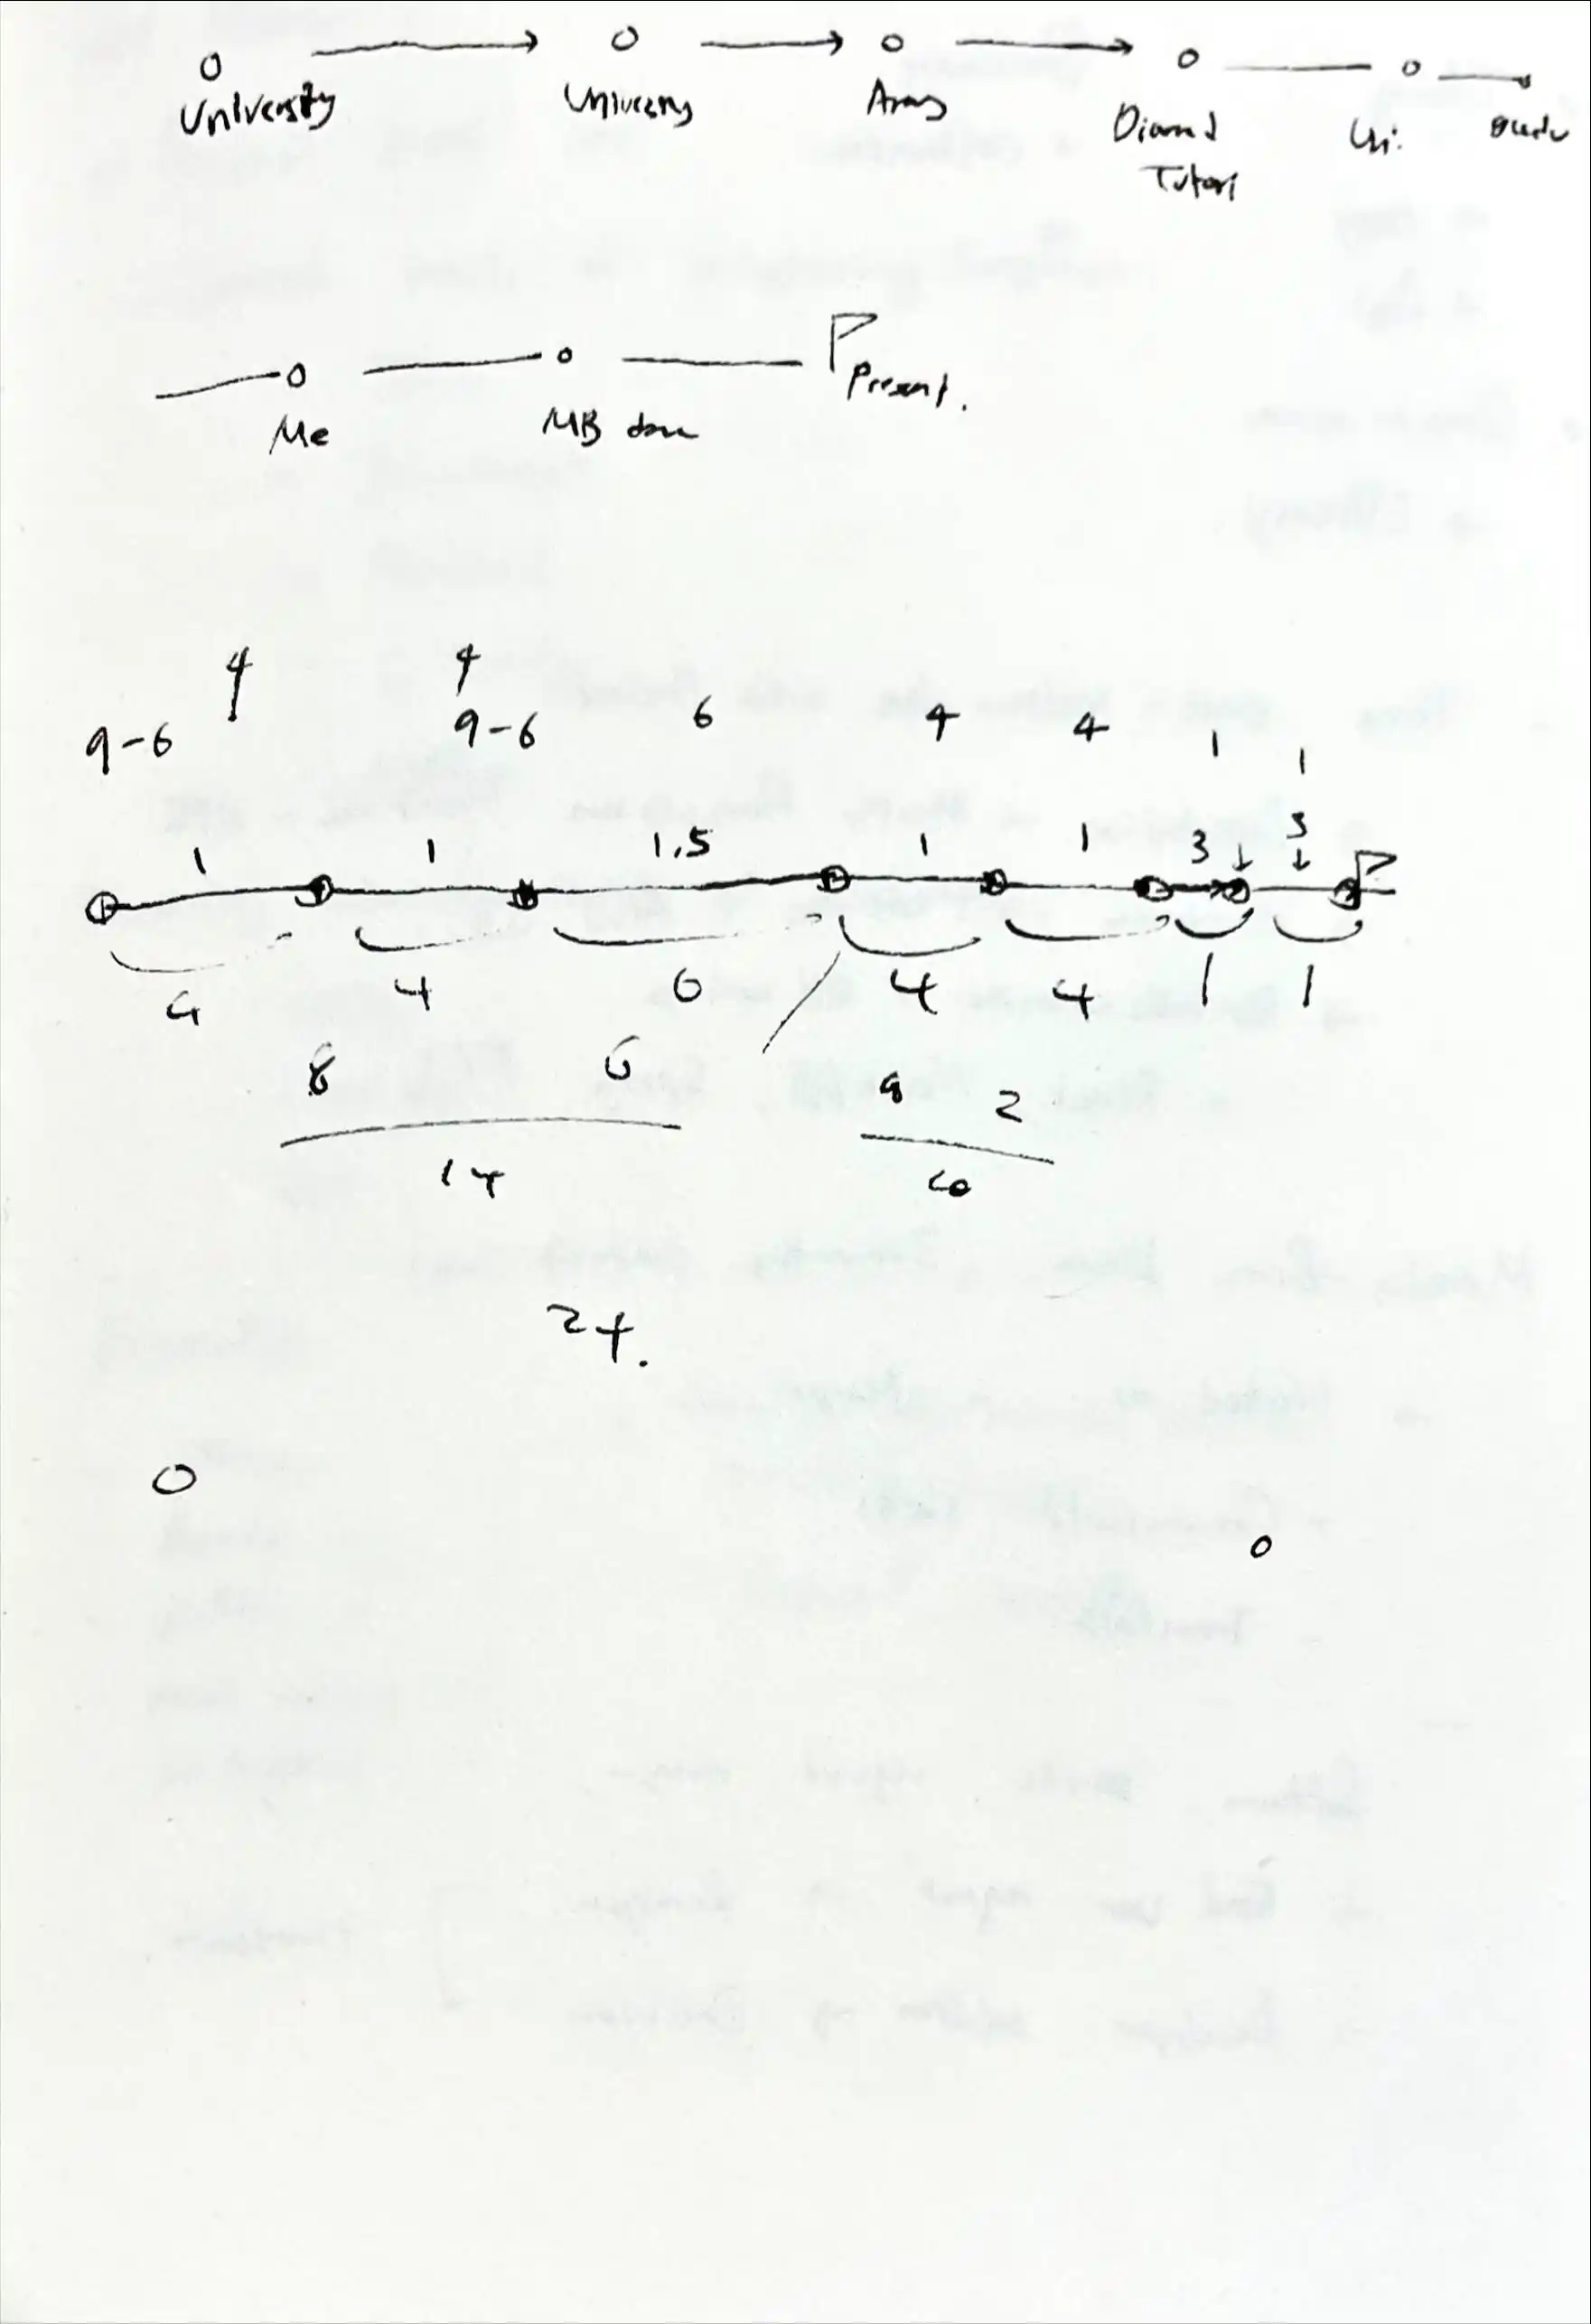 University University Army Diamond Uni.
Tutori
Me MB done Present.
4 4
9-6 9-6 6 4 4 1 1
1 1 1,5 1 1 3 3
4 4 6 4 4 1 1
8 6 8 2
14 10
24.